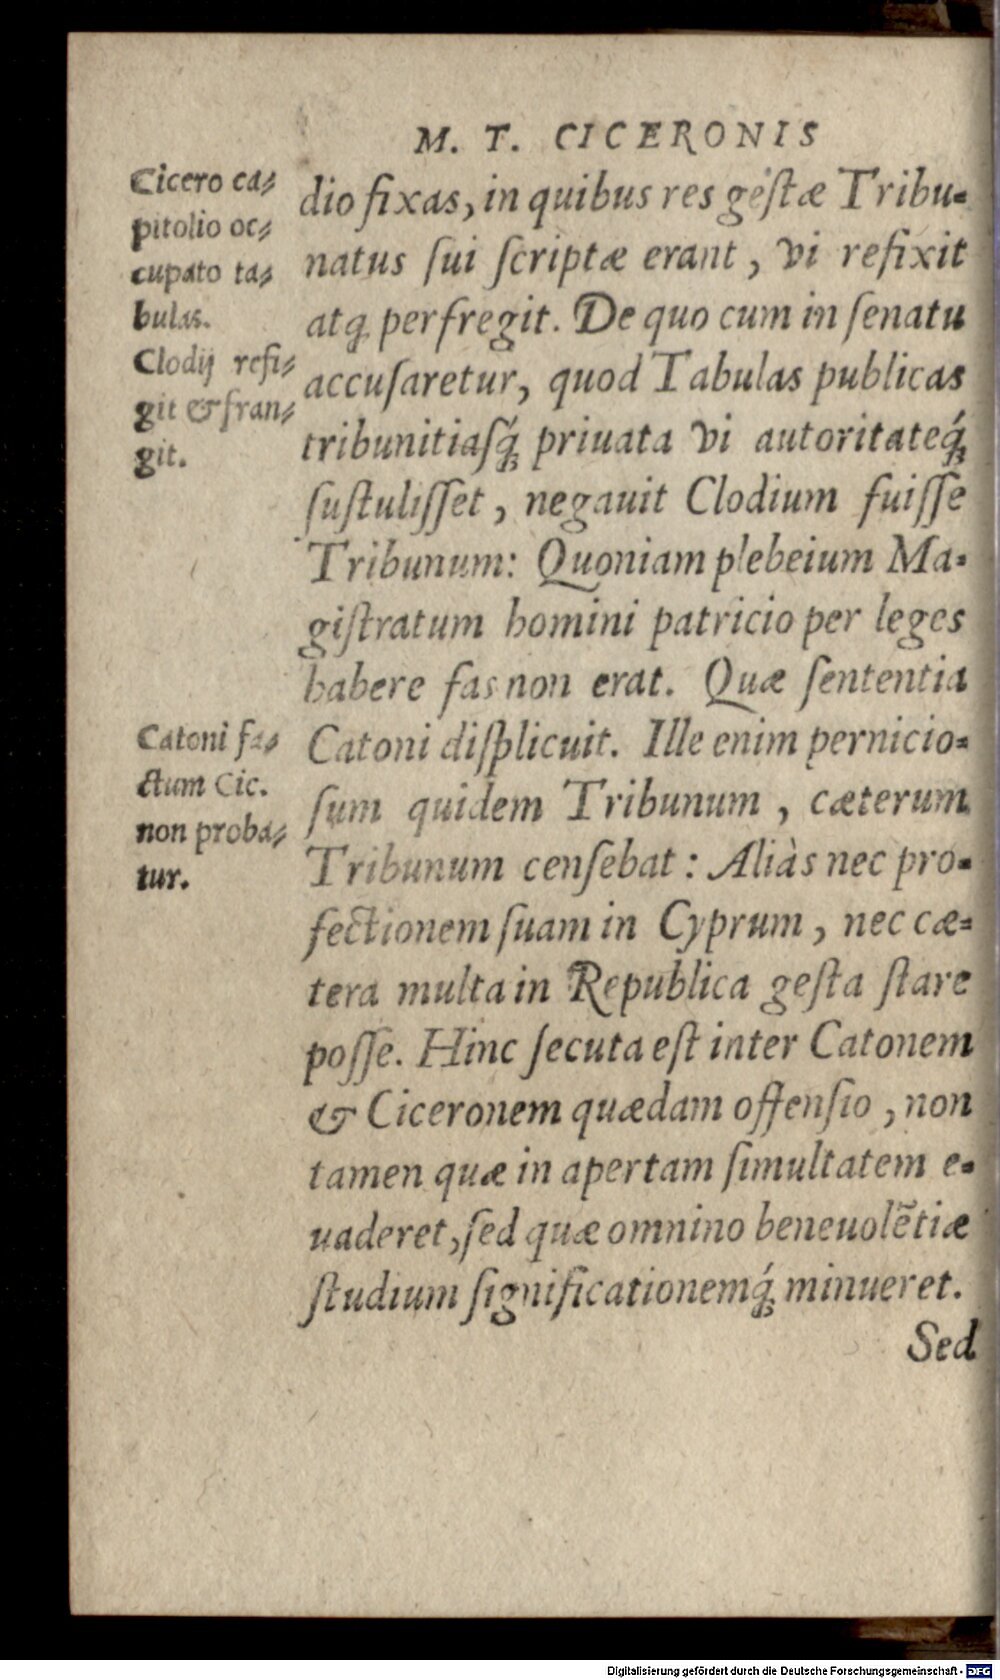 M. T. CICERONIS
Cicero ca-
pitolio oc-
cupato ta-
bulas.
Clodij refi-
git & fran-
git.
Catoni fa-
ctum Cic.
non proba-
tur.
dio fixas, in quibus res gestæ Tribu-
natus sui scriptæ erant, vi refixit
atq; perfregit. De quo cum in senatu
accusaretur, quod Tabulas publicas
tribunitiasq́; priuata vi autoritateq́;
sustulisset, negauit Clodium fuisse
Tribunum: Quoniam plebeium Ma-
gistratum homini patricio per leges
habere fas non erat. Quæ sententia
Catoni displicuit. Ille enim pernicio-
sum quidem Tribunum, cæterum
Tribunum censebat: Aliàs nec pro-
fectionem suam in Cyprum, nec cæ-
tera multa in Republica gesta stare
posse. Hinc secuta est inter Catonem
& Ciceronem quædam offensio, non
tamen quæ in apertam simultatem e-
uaderet, sed quæ omnino beneuolẽtiæ
studium significationemq́; minueret.
Sed
Digitalisierung gefördert durch die Deutsche Forschungsgemeinschaft - DFG